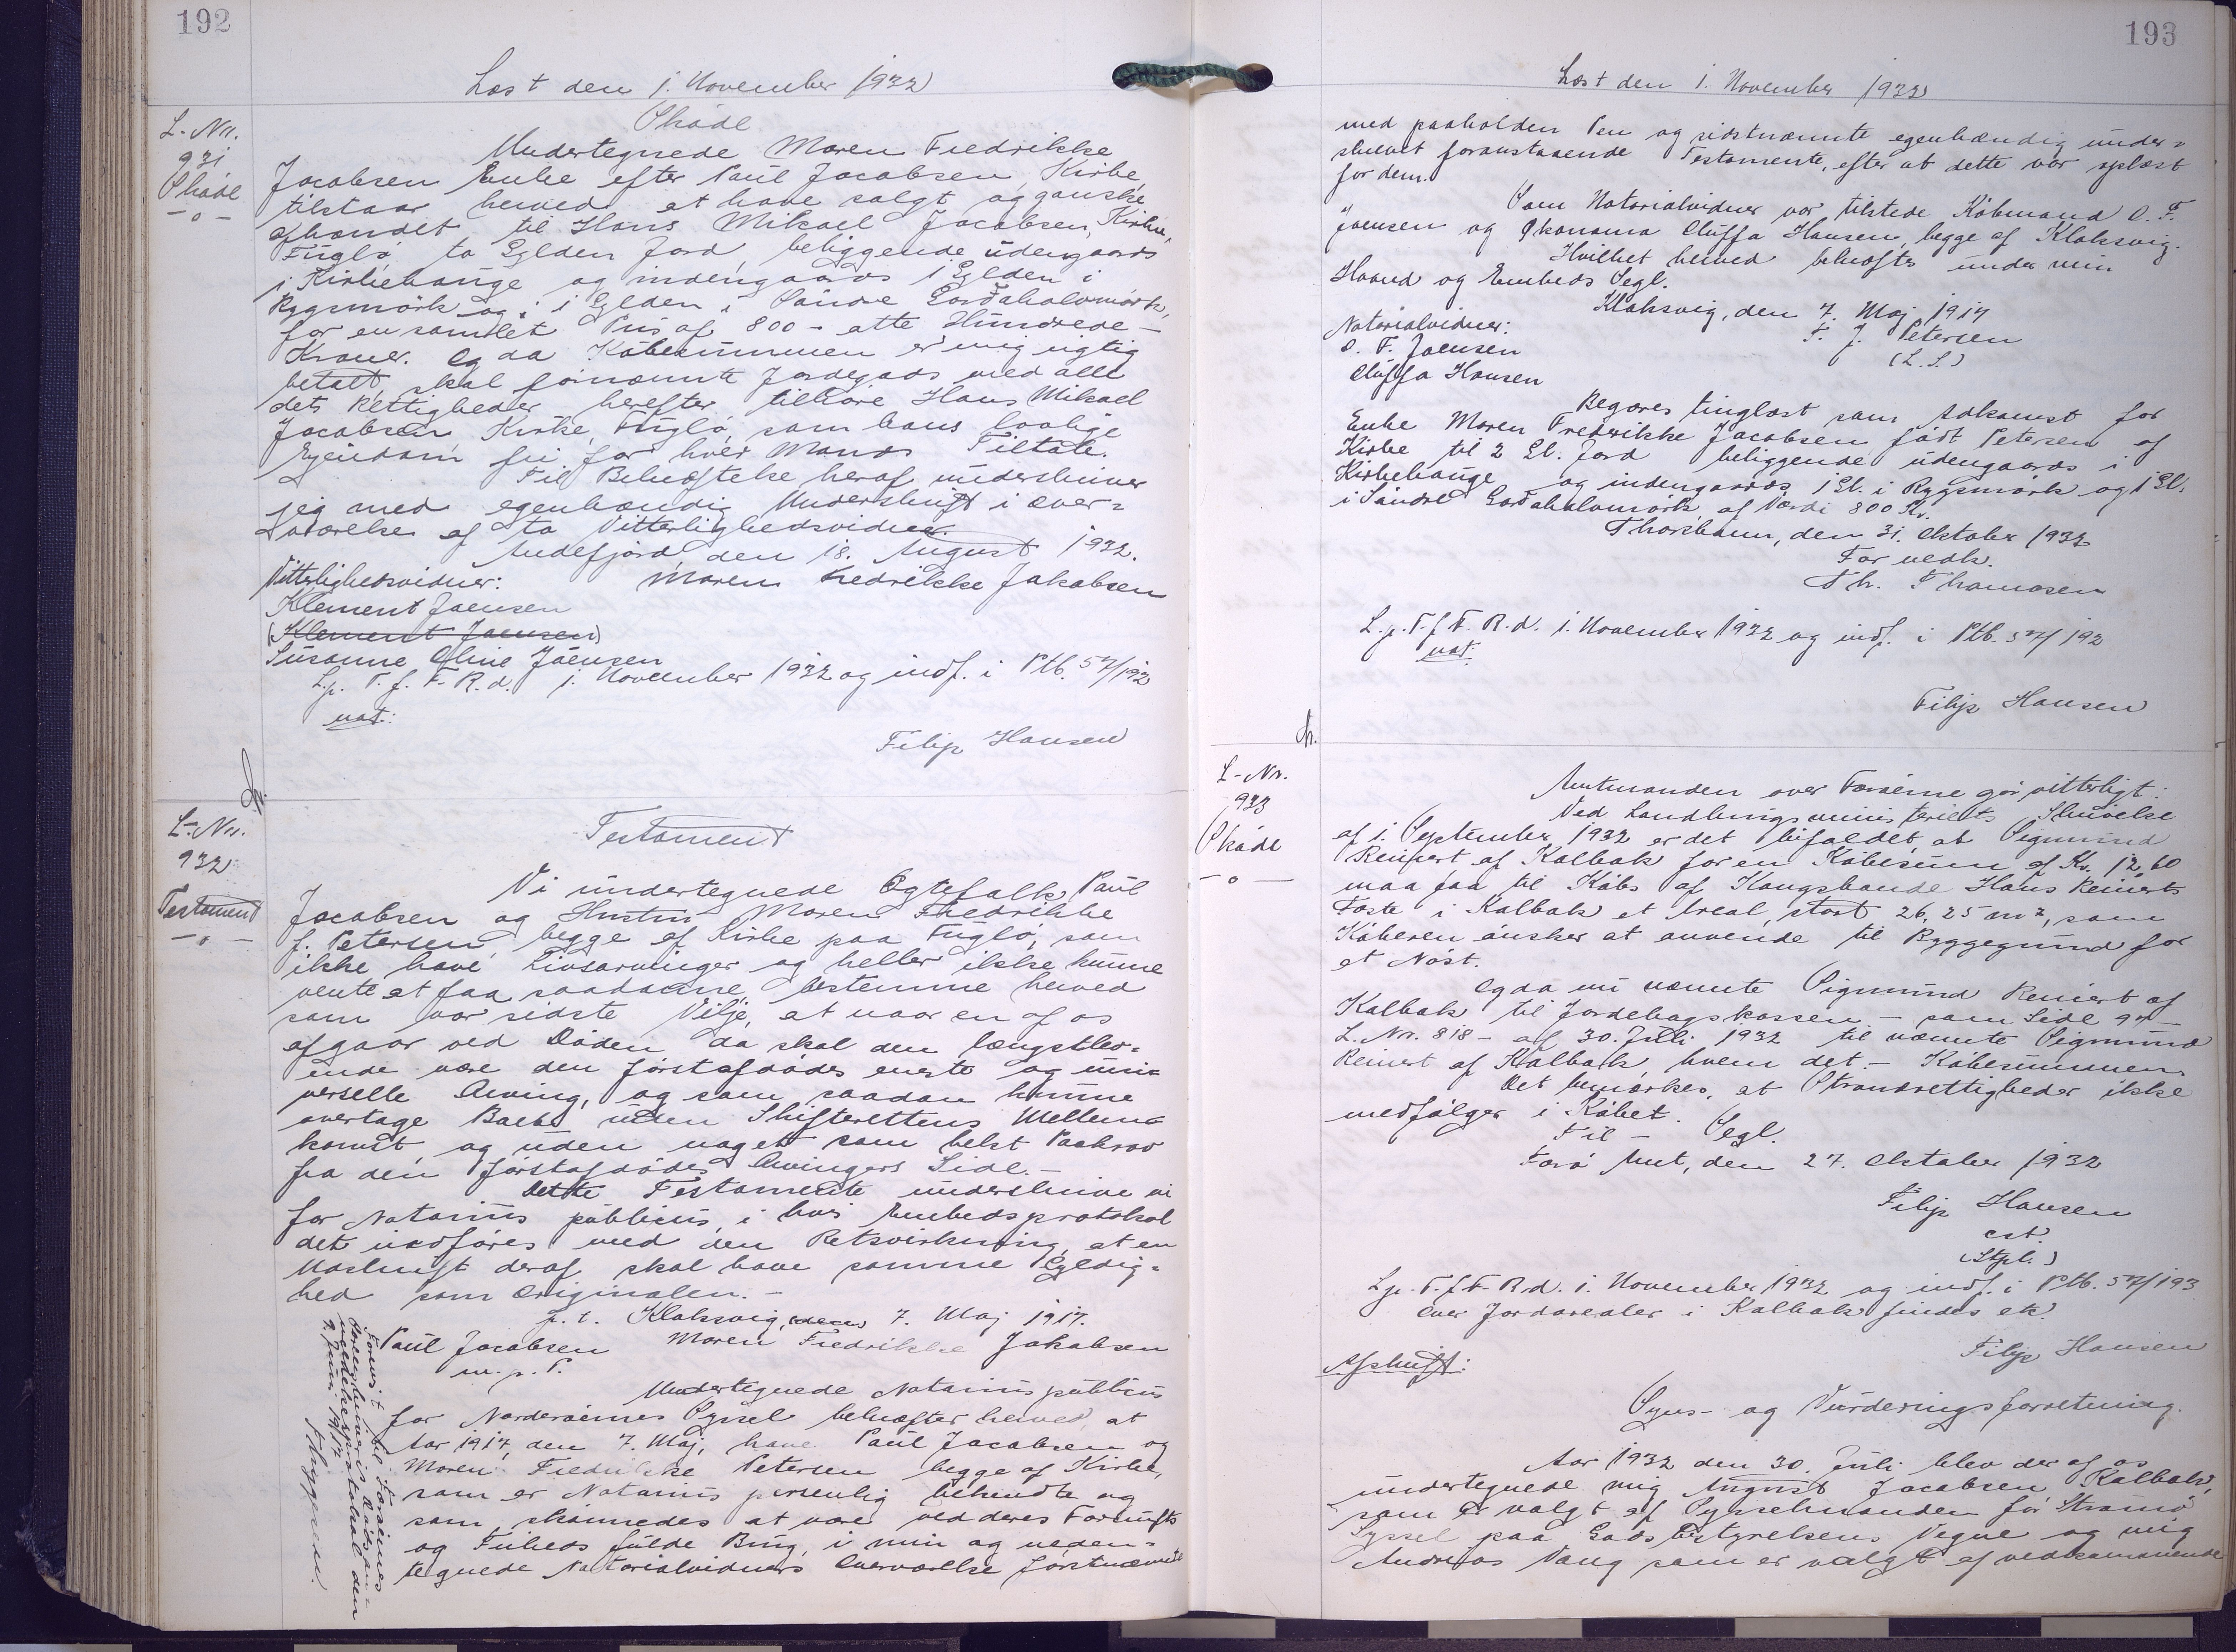 192
Læst den 1. November 1932
L. Nr.
931
Skøde
-o-
Skøde
Undertegnede Maren Fredrikke
Jacobsen Enke efter Paul Jacobsen, Kirke,
tilstaar herved at have solgt og ganske
afhændet til Hans Mikael Jacobsen, Kirke,
Fuglø, to Gylden Jord, beliggende udengaards
i Kirkehauge og indengaards 1 Gylden i
Rygsmørk og 1 Gylden i Søndre Gardahalvmørk,
for en samlet Pris af 800 - otte Hundrede -
Kroner. Og da Købesummen er mig rigtig
betalt, skal fornævnte Jordegods med alle
dets Rettigheder herefter tilhøre Hans Mikael
Jacobsen, Kirke, Fuglø, som hans lovlige
Ejendom, fri for hver Mands Tiltale.
Til Bekræftelse heraf underskriver
jeg med egenhændig Underskrift i over-
værelse af to Vitterlighedsvidner.
Andefjord, den 18. August 1932.
Vitterlighedsvidner: Maren Fredrikke Jakobsen
Klement Joensen
(Klement Joensen)
Susanne Oline Joensen
L. p. T. f. F. R. d. 1. November 1932 og indf. i Ptb. 57/192
not:
Filip Hansen
L. Nr.
932
Testament
-o-
Testament
Vi undertegnede Ægtefolk, Paul
Jacobsen og Hustru Maren Fredrikke
f. Petersen, begge af Kirke paa Fuglø, som
ikke have Livsarvinger og heller ikke kunne
vente at faa saadanne, bestemme herved
som vor sidste Vilje, at naar en af os
afgaar ved Døden da skal den længstlev-
ende være den førstafdødes eneste og uni-
verselle Arving, og som saadan kunne
overtage Boet uden Skifterettens Mellem-
komst og uden noget som helst Paakrav
fra den førstafdødes Arvingers Side. -
Dette Testamente underskrive vi
for Notarius publicus, i hvis Embedsprotokol
det indføres med den Retsvirkning, at en
Udskrift deraf skal have samme Gyldig-
hed som Originalen. -
p. t. Klaksvig, (den) 7. Maj 1917.
Paul Jacobsen Maren Fredrikke Jakobsen
m. p. P.
Undertegnede Notarius publicus
for Norderøernes Syssel bekræfter herved, at
Aar 1917, den 7. Maj, have Paul Jacobsen og
Maren Fredrikke Petersen begge af Kirke,
som er Notarius personlig bekendte og
som skønnedes at være ved deres Fornufts
og Friheds fulde Brug, i min og neden-
tegnede Notarialvidners Overværelse førstnævnte
Forevist for Færøernes
9. Juni 1917.
193
Læst den 1. November 1932
med paaholden Pen og sidstnævnte egenhændig under-
skrevet foranstaaende Testamente, efter at dette var oplæst
for dem.
Som Notarialvidner var tilstede Købmand O. F.
Joensen og Økonoma Cluffa Hansen, begge af Klaksvig.
Hvilket herved bekræftes under min
Haand og Embeds Segl.
Klaksvig, den 7. Maj 1917
Notarialvidner: F. J. Petersen
O. F. Joensen (L.S.)
Cluffa Hansen
Begæres tinglæst som Adkomst for
Enke Maren Frederikke Jacobsen født Petersen af
Kirke til 2 Gl. Jord beliggende udengaards i
Kirkehauge og indengaards 1 Gl. i Rygsmørk og 1 Gl.
i Søndre Gardahalvmørk, af Værdi 800 Kr.
Thorshavn, den 31. Oktober 1932
For vedk.
Th. Thomasen
L. p. T. f. F. R. d. 1. November 1932 og indf. i Ptb. 57/192
not:
Filip Hansen
L-Nr.
933
Skøde
-o-
Amtmanden over Færøerne gør vitterligt:
Ved Landbrugsministeriets Skrivelse
af 1. September 1932 er det bifaldet, at Sigmund
Reinert af Kalbak for en Købesum af Kr. 12,60
maa faa til Købs af Kongsbonde Hans Reinerts
Fæste i Kalbak et Areal, stort 26,25 m², som
Køberen ønsker at anvende til Byggegrund for
et Nøst.
Og da nu nævnte Sigmund Reinert af
Kalbak til Jordebogskassen - som Side 97 -
L. Nr. 818 - af 30. Juli 1932 til nævnte Sigmund
Reinert af Kalbak, hvem det - Købesummen.
Det bemærkes, at Strandrettigheder ikke
medfølger i Købet.
Til - Segl.
Færø Amt, den 27. Oktober 1932
Filip Hansen
cst.
(Stpl.)
L. p. T. f. F. R. d. 1. November 1932 og indf. i Ptb. 57/193
Over Jordarealer i Kalbak findes etc.
Filip Hansen
Afskrift:
Syns- og Vurderingsforretning.
Aar 1932 den 30. Juli blev der af os
undertegnede mig August Jacobsen Kalbak,
som er valgt af Sysselmanden for Strømø
Syssel paa Godsbestyrelsens Vegne og mig
Andreas Vang som er valgt af vedkommende